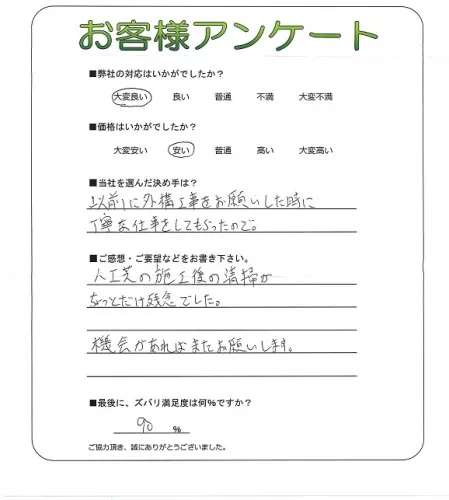 お客様アンケート
■弊社の対応はいかがでしたか？
大変良い 良い 普通 不満 大変不満
■価格はいかがでしたか？
大変安い 安い 普通 高い 大変高い
■当社を選んだ決め手は？
以前に外構工事をお願いした時に
丁寧な仕事をしてもらったので。
■ご感想・ご要望などをお書き下さい。
人工芝の施工後の清掃が
ちょっとだけ残念でした。
機会があればまたお願いします。
■最後に、ズバリ満足度は何％ですか？
90 ％
ご協力頂き、誠にありがとうございました。